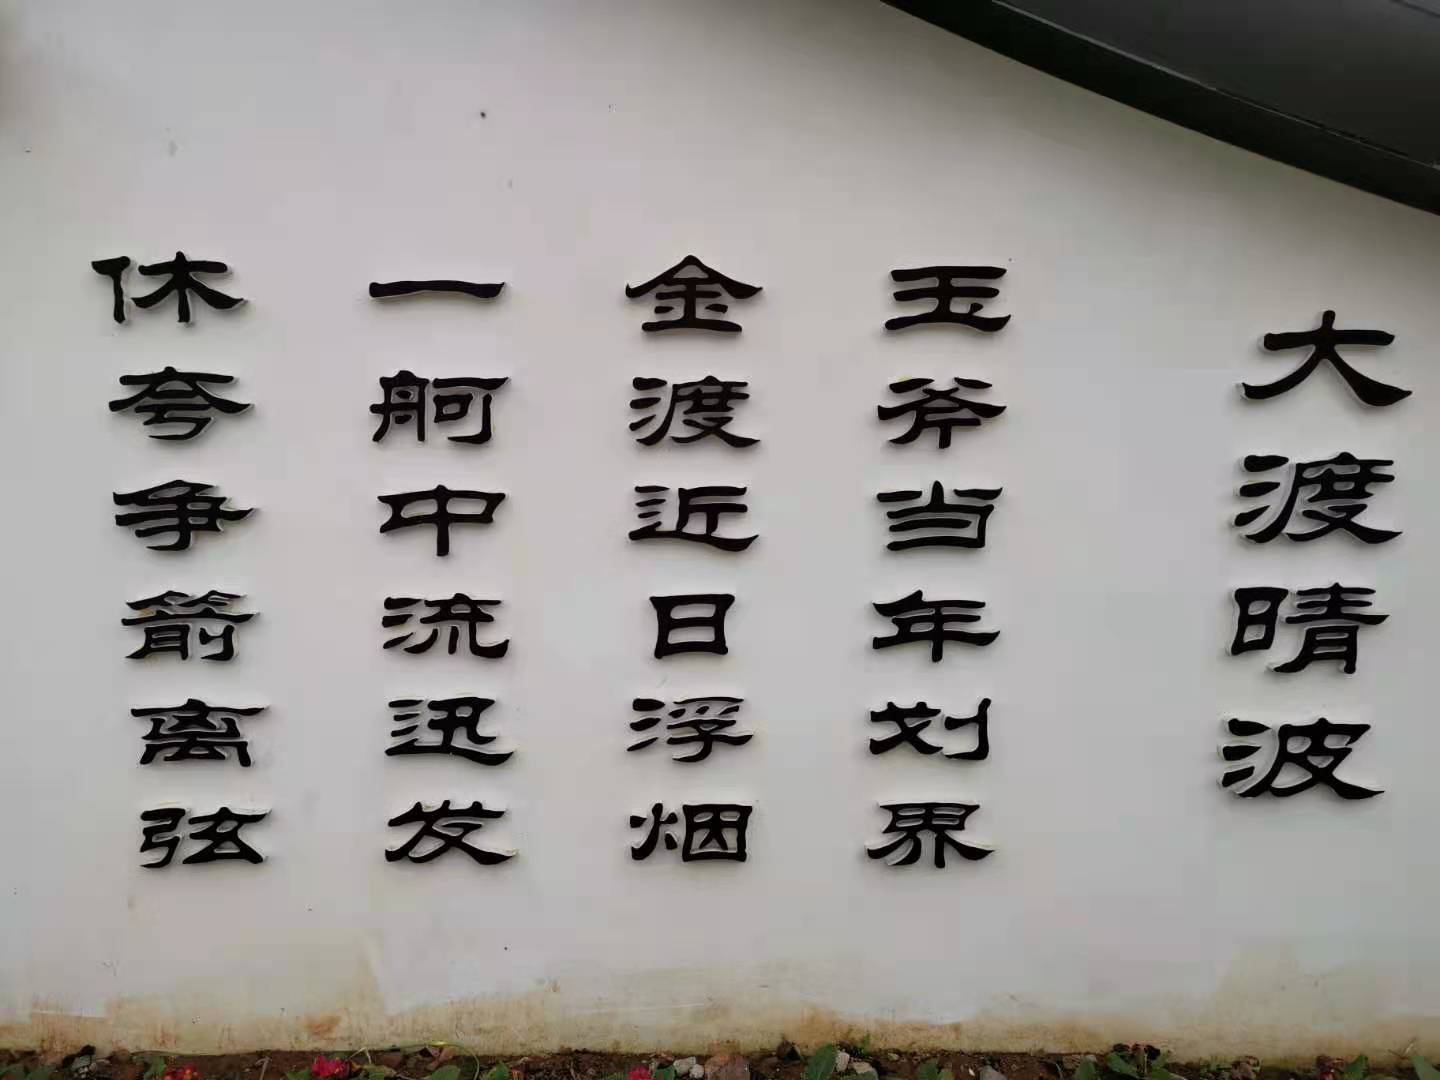 大渡晴波
玉斧当年划界
金渡近日浮烟
一舸中流迅发
休夸争箭离弦